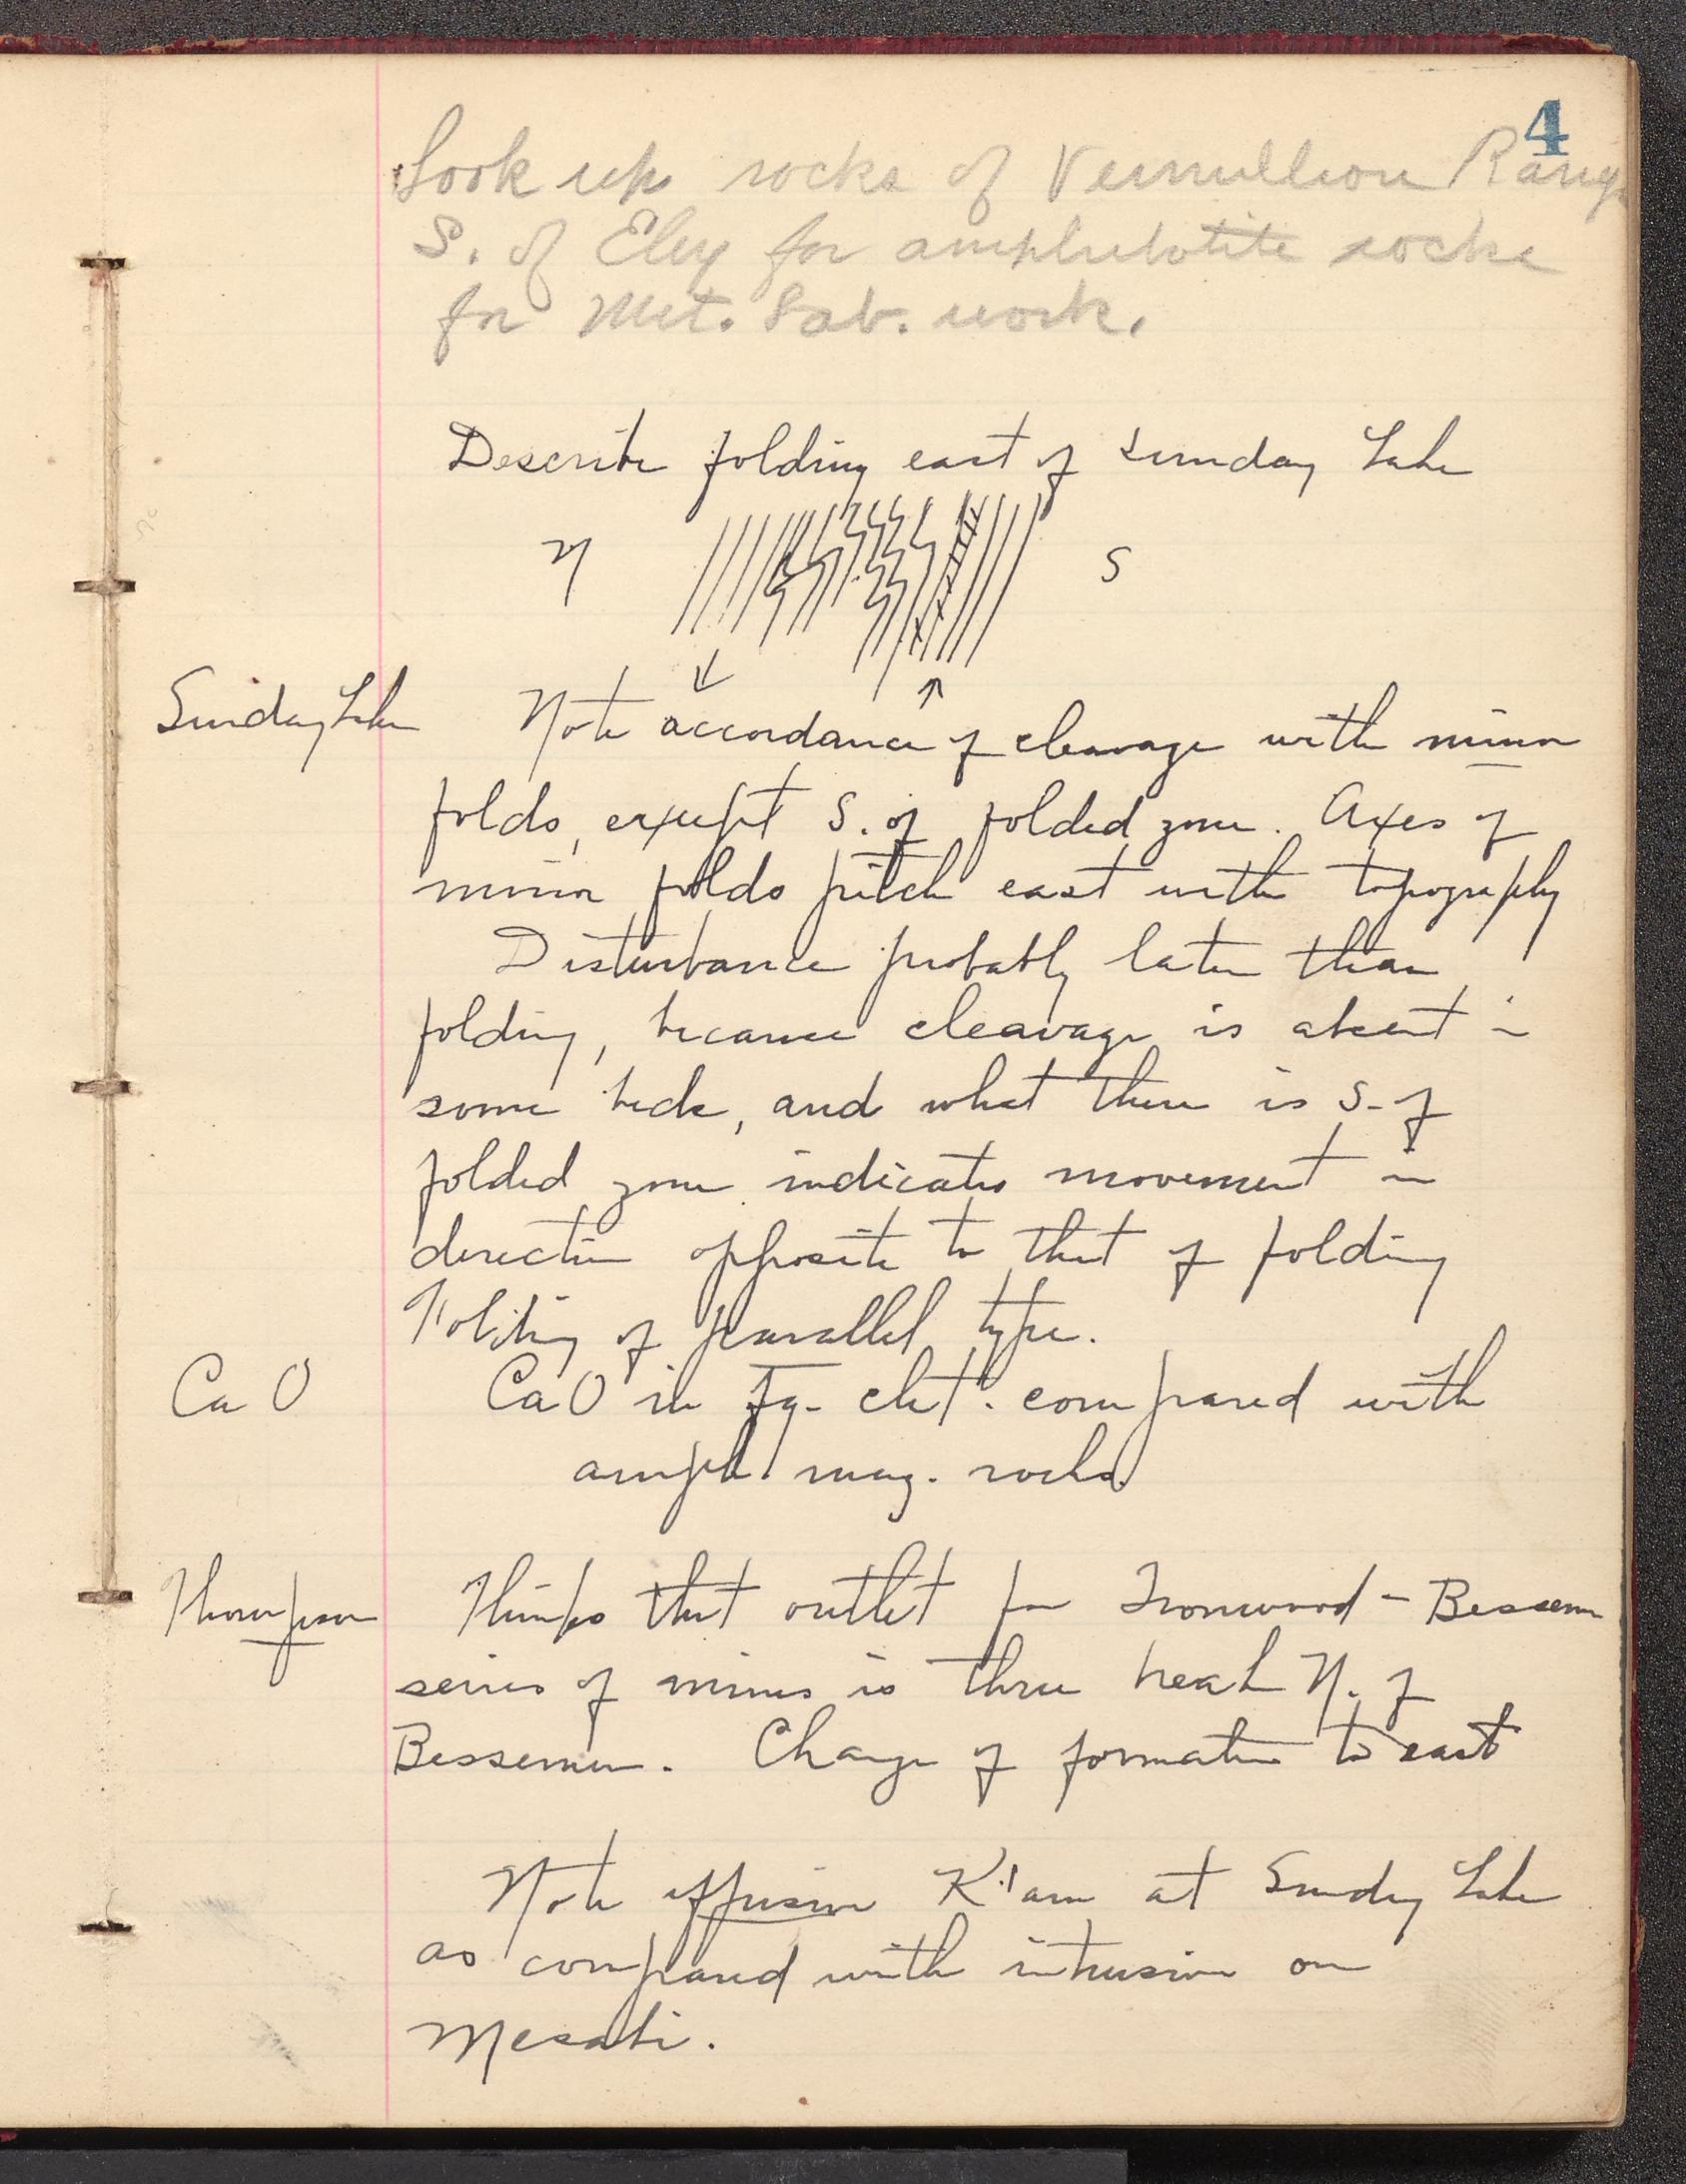 4
Look up rocks of Vermillion Range
S. of Ely for amphibolite rocks
for Met. Lab. work.
Describe folding east of Sunday Lake
N S
Sunday Lake
Note accordance of cleavage with minor
folds, except S. of folded zone. Axes of
minor folds pitch east with topography
Disturbance probably later than
folding, because cleavage is absent in
some beds, and what there is S. of
folded zone indicates movement in
direction opposite to that of folding
Folding of parallel type.
CaO
CaO in Fg. cht. compared with
amph. mag. rocks.
Thompson
Thinks that outlet for Ironwood - Bessemer
series of mines is thru break N. of
Bessemer. Change of formation to east
Note effusive at Sunday Lake
as compared with intrusive on
Mesabi.